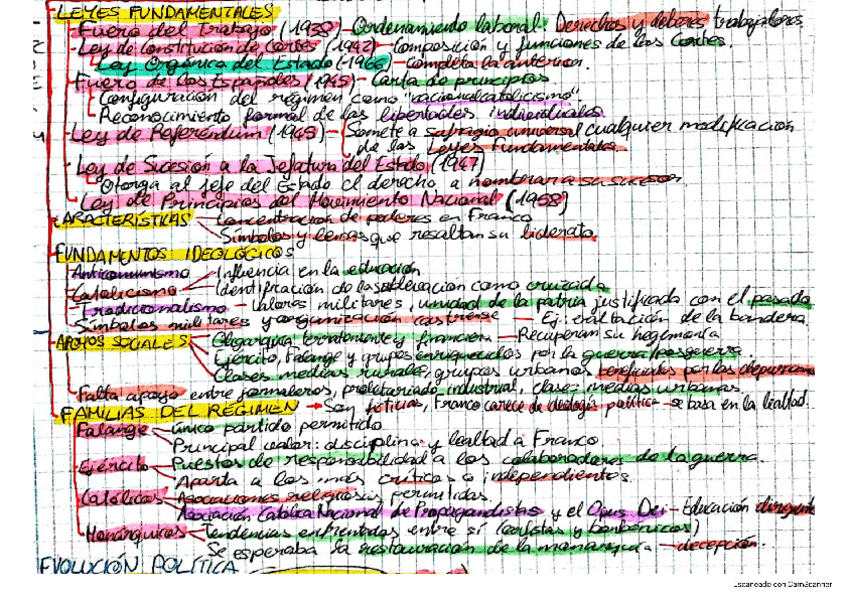 LEYES FUNDAMENTALES
Fuero del Trabajo (1938) - Ordenamiento laboral. Derechos y deberes trabajadores.
Ley de Constitución de Cortes (1942) - Composición y funciones de las Cortes.
Ley Orgánica del Estado (1966) - Completa la anterior.
Fuero de los Españoles (1945) - Carta de principios
Configuración del régimen como "nacionalcatolicismo"
Reconocimiento formal de las libertades individuales.
Ley de Referéndum (1945) - Somete a sufragio universal cualquier modificación
de las Leyes Fundamentales.
Ley de Sucesión a la Jefatura del Estado (1947)
Otorga al jefe del Estado el derecho a nombrar a su sucesor.
Ley de Principios del Movimiento Nacional (1958)
CARACTERÍSTICAS - Concentración de poderes en Franco
Símbolos y lemas que resaltan su liderato.
FUNDAMENTOS IDEOLÓGICOS
Anticomunismo - Influencia en la educación
Catolicismo - Identificación de la sublevación como cruzada
Tradicionalismo - Valores militares, unidad de la patria justificada con el pasado
Símbolos militares y organización castrense - Ej: exaltación de la bandera.
APOYOS SOCIALES - Oligarquía terrateniente y financiera - Recuperan su hegemonía
Ejército, Falange y grupos enriquecidos por la guerra/posguerra
Clases medias rurales, grupos urbanos beneficiados por las
Falta apoyo entre jornaleros, proletariado industrial, clases medias urbanas.
FAMILIAS DEL RÉGIMEN → Son ficticias, Franco carece de ideología política - se basa en la lealtad.
Falange - único partido permitido.
Principal valor: disciplina y lealtad a Franco
Ejército - Puestos de responsabilidad a los colaboradores de la guerra.
Aparta a los más críticos o independientes.
Católicos - Asociaciones religiosas permitidas.
Asociación Católica Nacional de Propagandistas y el Opus Dei - Educación dirigente
Monárquicos - Tendencias enfrentadas entre sí (carlistas y borbónicos)
Se esperaba la restauración de la monarquía - decepción.
EVOLUCIÓN POLÍTICA
Escaneado con CamScanner